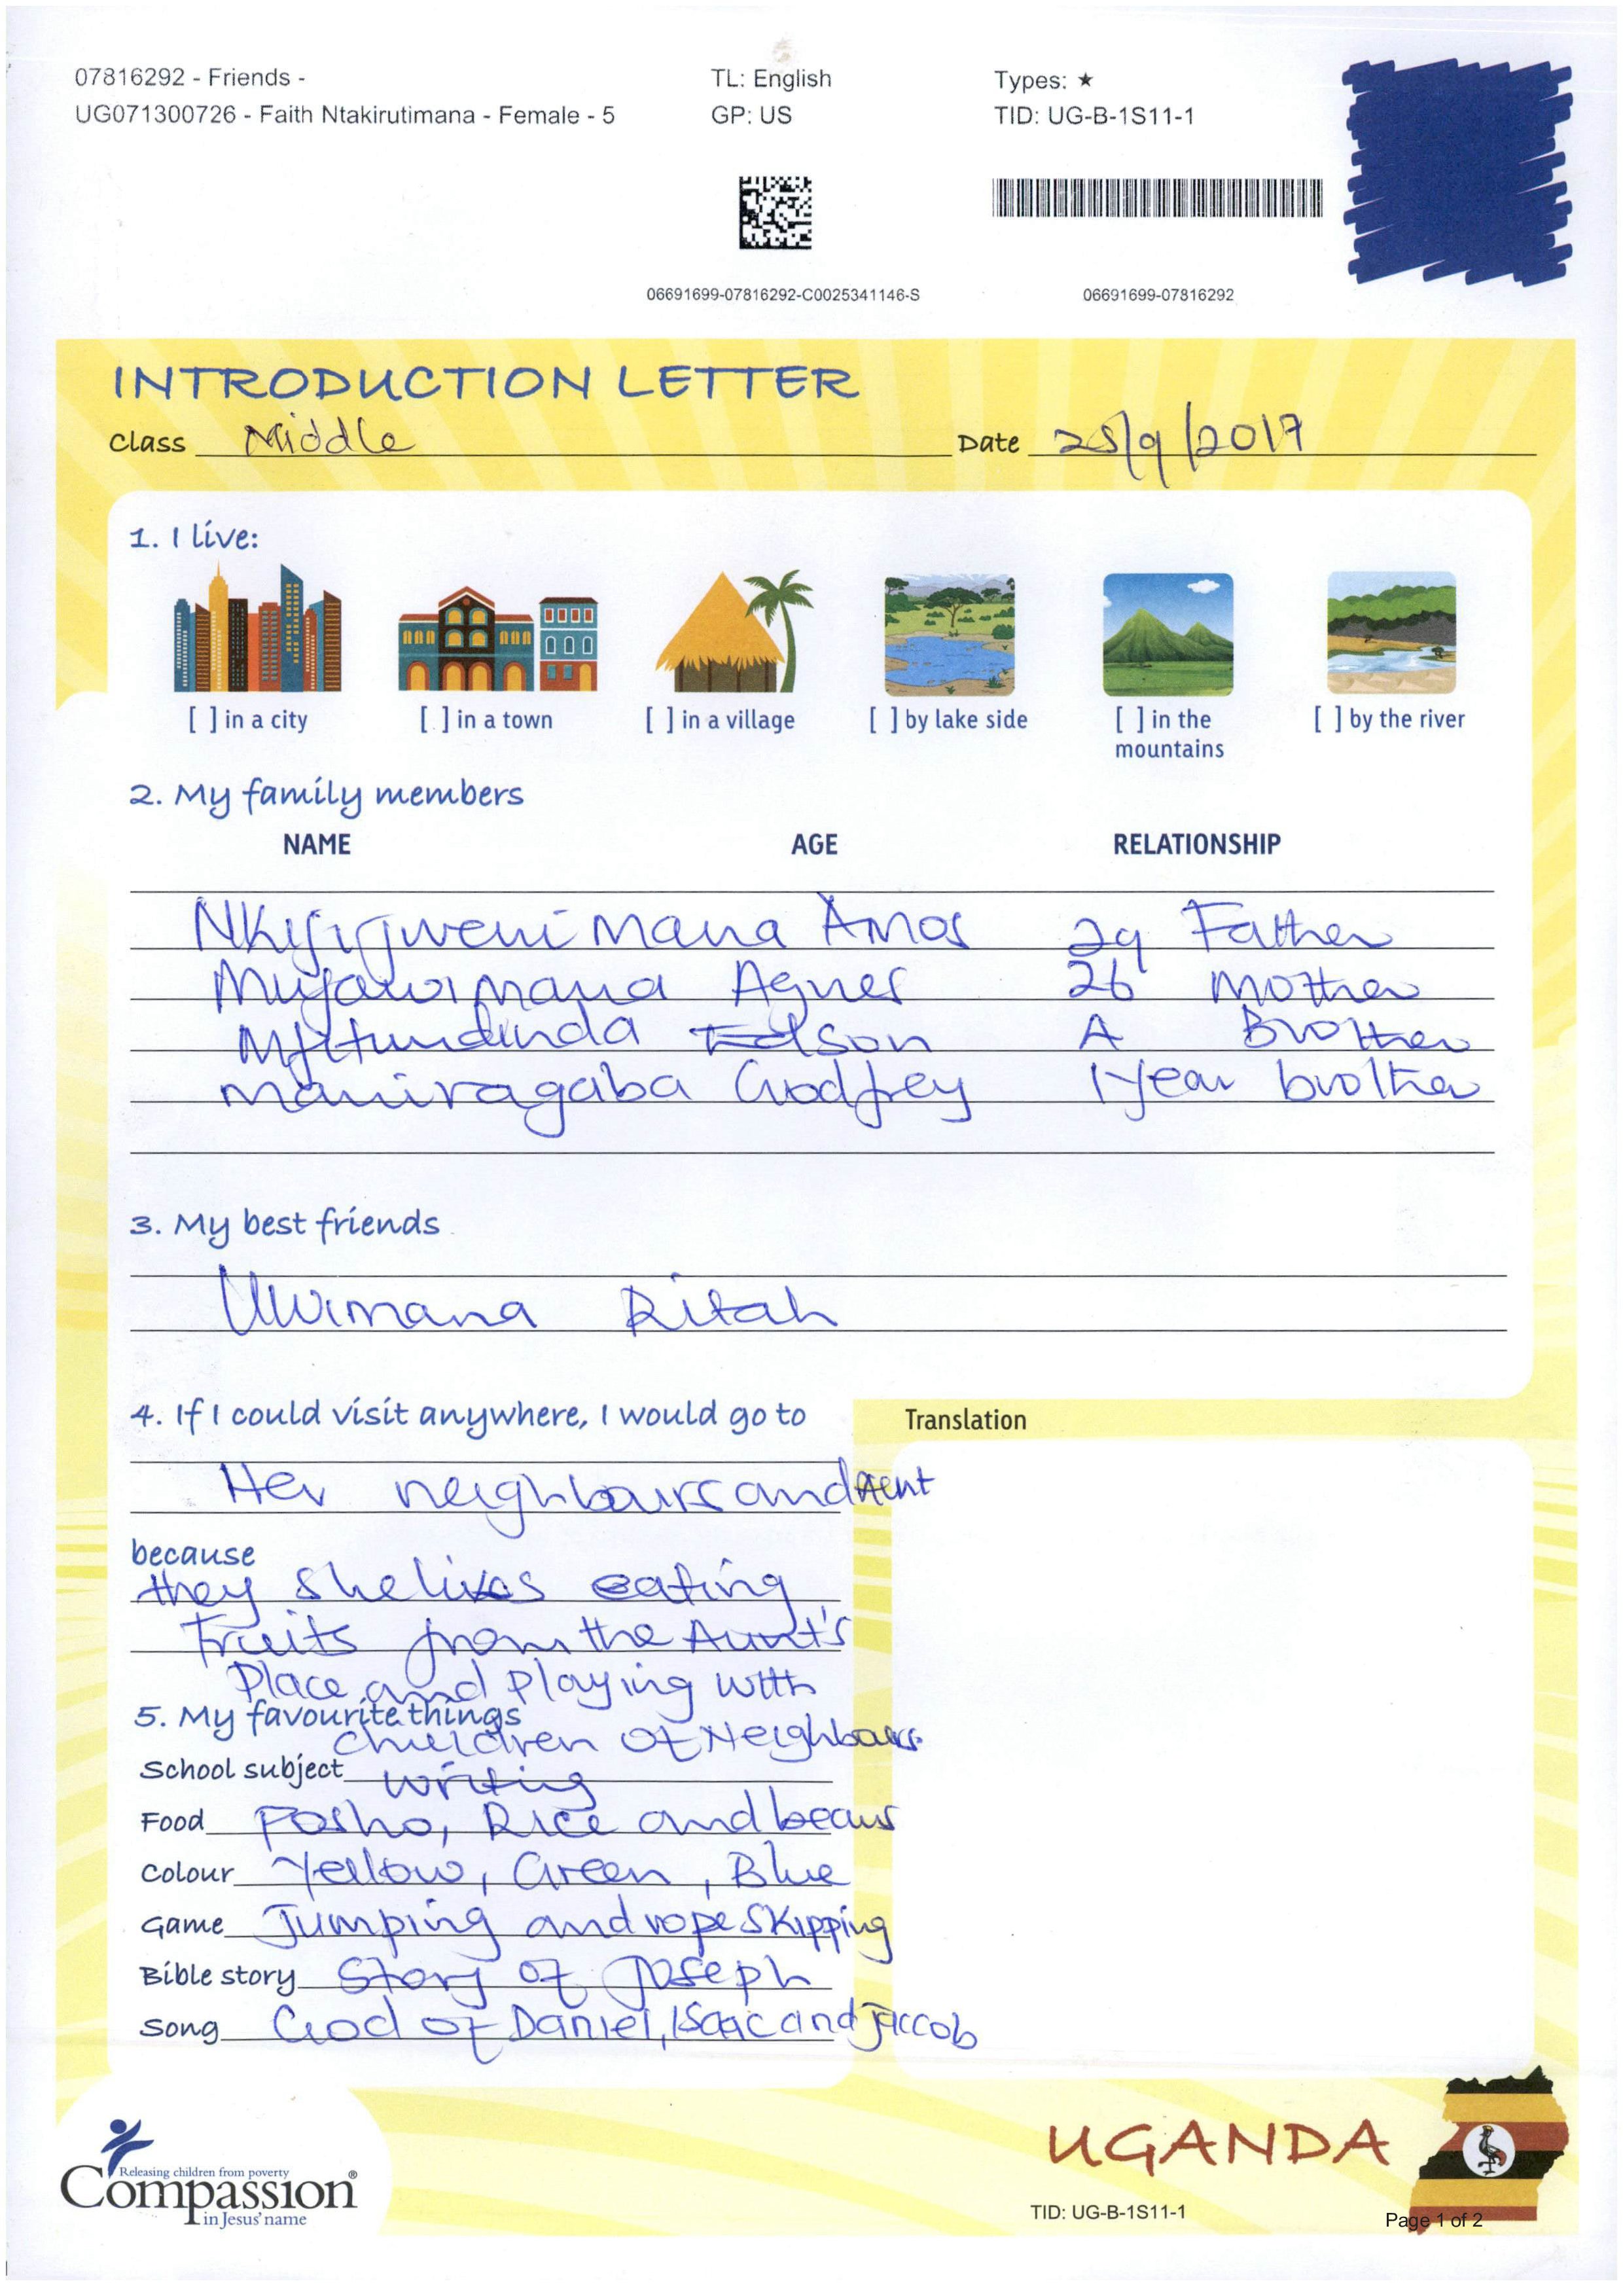 07816292 - Friends -
UG071300726 - Faith Ntakirutimana - Female - 5
TL: English
GP: US
Types: ★
TID: UG-B-1S11-1
06691699-07816292-C0025341146-S
06691699-07816292
INTRODUCTION LETTER
Class Middle
Date 25/9/2017
1. I live:
[ ] in a city
[ ] in a town
[ ] in a village
[ ] by lake side
[ ] in the
mountains
[ ] by the river
2. My family members
NAME AGE RELATIONSHIP
Amos 29 Father
Mujawimana Agnes 26 Mother
Edson A Brother
Maniragaba Godfrey 1 year brother
3. My best friends
Uwimana Ritah
4. If I could visit anywhere, I would go to
Her neighbours and Aent
because
they she likes eating
Fruits from the Aunt's
Place and Playing with
children of Neighbours.
5. My favourite things
School subject writing
Food Posho, Rice and beans
Colour Yellow, Green, Blue
Game Jumping and rope skipping
Bible story Story of Joseph
Song God of Daniel, Isaac and Jaccob
Translation
Releasing children from poverty
Compassion®
in Jesus' name
UGANDA
TID: UG-B-1S11-1
Page 1 of 2